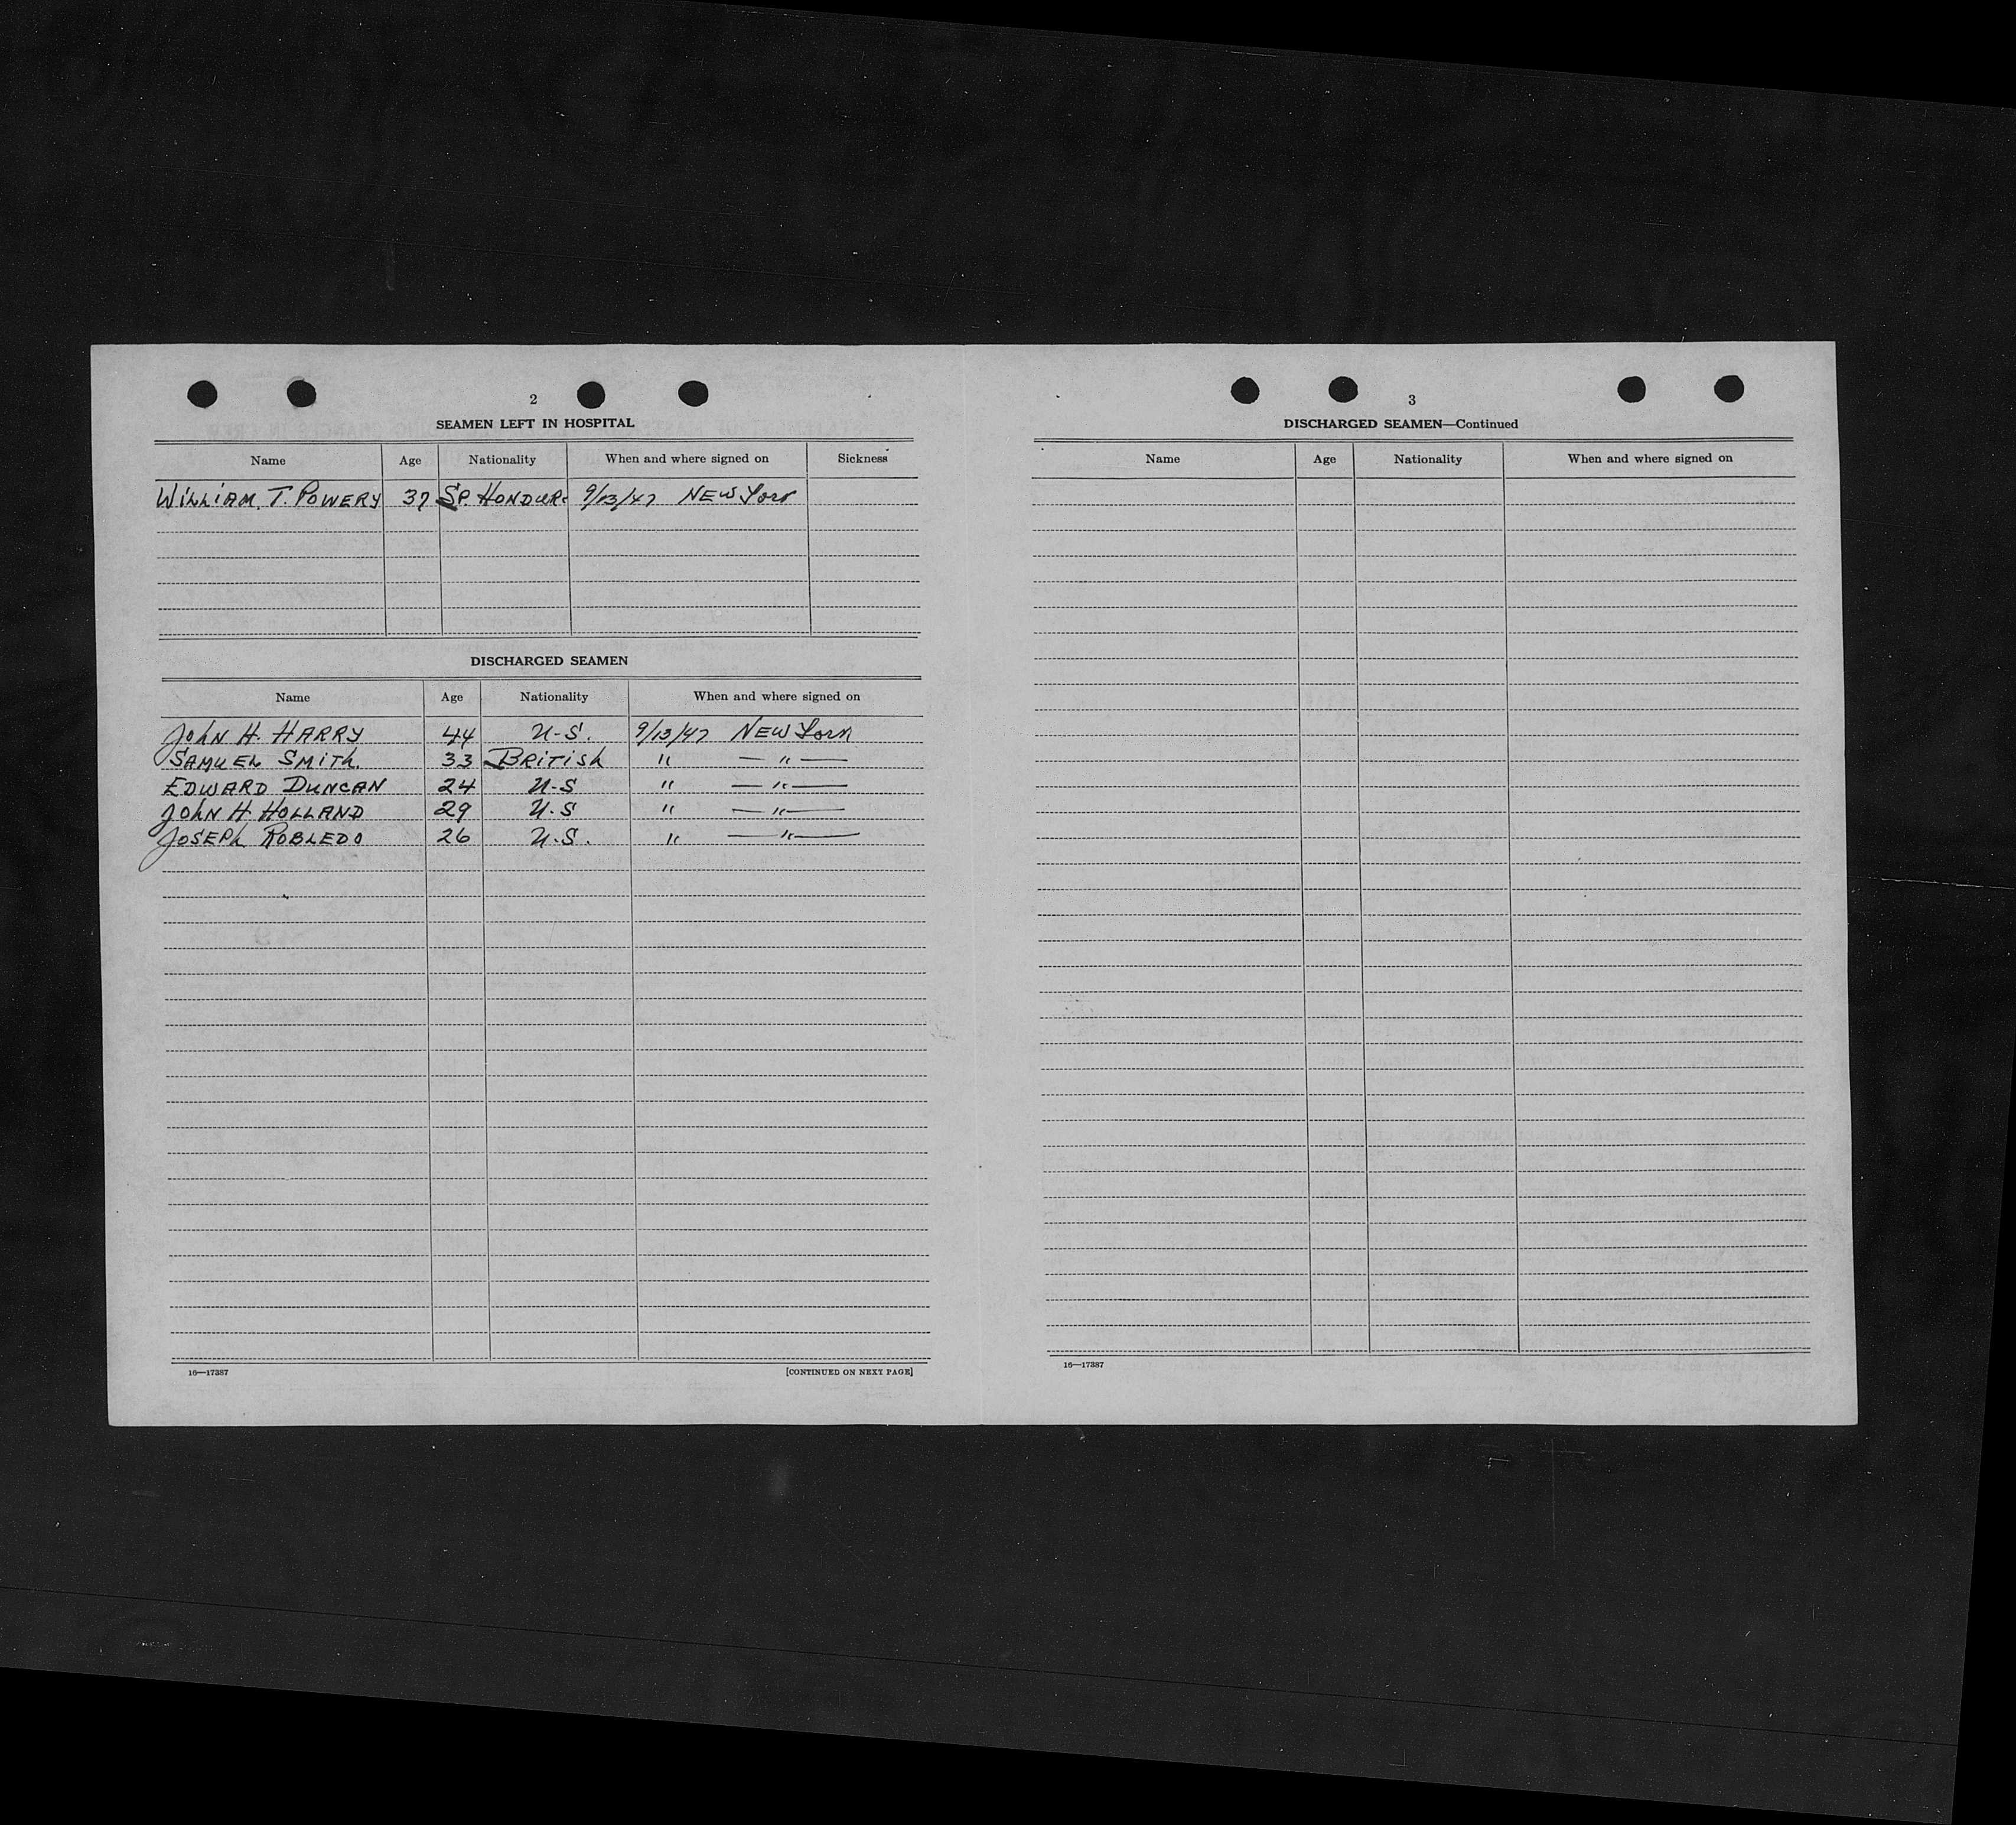 2
SEAMEN LEFT IN HOSPITAL
Name Age Nationality When and where signed on Sickness
WILLIAM. T. POWERY 37 SP. HONDUR. 9/13/47 NEW YORK
DISCHARGED SEAMEN
Name Age Nationality When and where signed on
JOHN H. HARRY 44 U-S. 9/13/47 NEW YORK
SAMUEL SMITH. 33 BRITISH " — " —
EDWARD DUNCAN 24 U-S " — " —
JOHN H. HOLLAND 29 U.S " — " —
JOSEPH ROBLEDO 26 U.S. " — " —
16—17387 [CONTINUED ON NEXT PAGE]
3
DISCHARGED SEAMEN—Continued
Name Age Nationality When and where signed on
16—17387